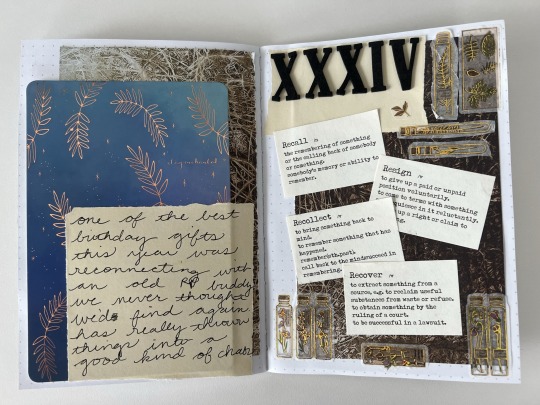 one of the best
birthday gifts
this year was
reconnecting with
an old RP buddy
we never thought
we'd find again
has really thrown
things into a
good kind of chaos
XXXIV
Recall /v
the remembering of something
or the calling back of somebody
or something.
somebody's memory or ability to
remember.
Resign /v
to give up a paid or unpaid
position voluntarily.
to come to terms with something
quiesce in it reluctantly.
up a right or claim to
Recollect /v
to bring something back to
mind.
to remember something that has
happened.
remember
call back to the mind
remembering.
Recover /v
to extract something from a
source, e.g. to reclaim useful
substances from waste or refuse.
to obtain something by the
ruling of a court.
to be successful in a lawsuit.